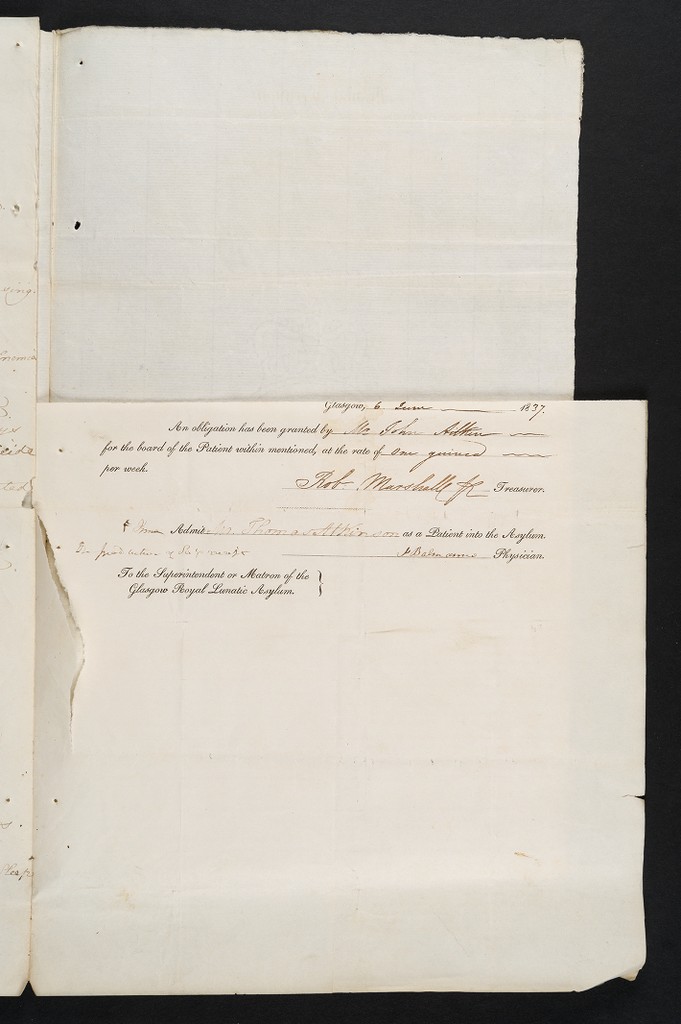 Glasgow, 6 June 1837.
An obligation has been granted by Mr John Aitken
for the board of the Patient within mentioned, at the rate of One guinea
per week.
Rob. Marshall Jr Treasurer.
Admit Mr. Thomas Atkinson as a Patient into the Asylum.
Balmanno Physician.
To the Superintendent or Matron of the
Glasgow Royal Lunatic Asylum.